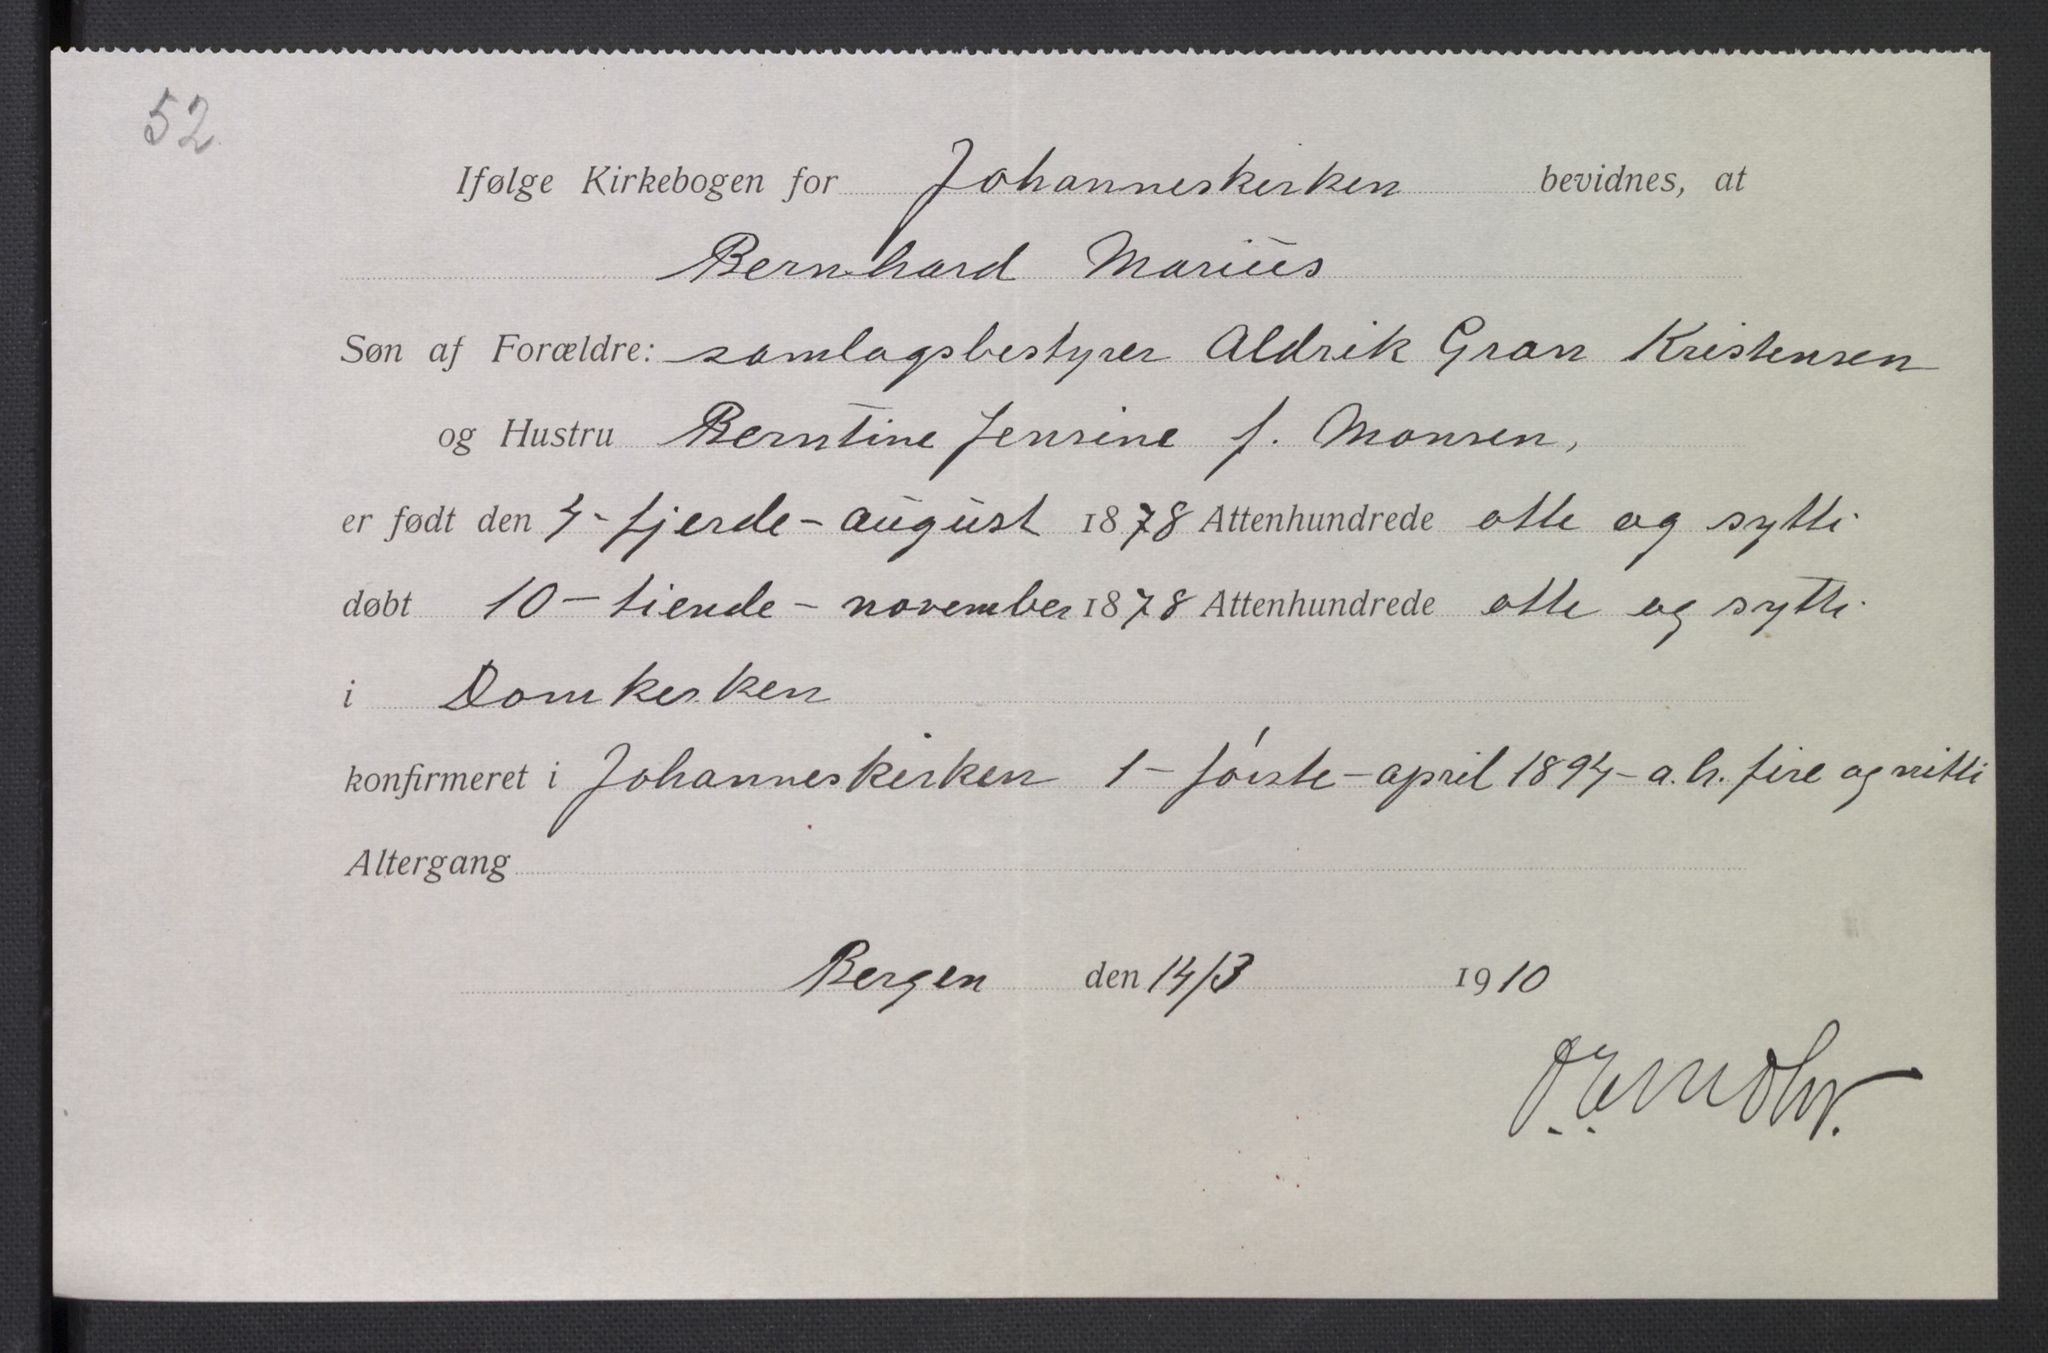 52
Ifølge Kirkebogen for Johanneskirken bevidnes, at
Bernhard Marius
Søn af Forældre: samlagsbestyrer Aldrik Gran Kristensen
og Hustru Berntine Jensine f. Monsen,
er født den 4 - fjerde - august 1878 Attenhundrede otte og sytti
døbt 10 - tiende - november 1878 Attenhundrede otte og sytti
i Domkirken
konfirmeret i Johanneskirken 1 - første - april 1894 - a.h. fire og nitti
Altergang
Bergen den 14/3 1910
O.E. Mohr.